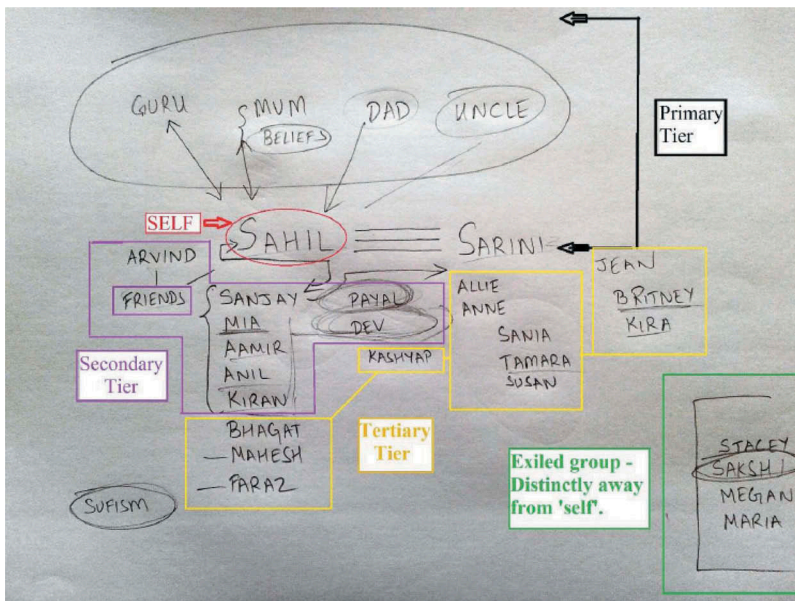 GURU
MUM
BELIEFS
DAD
UNCLE
Primary
Tier
SELF
SAHIL
SARINI
ARVIND
FRIENDS
SANJAY
MIA
AAMIR
ANIL
KIRAN
PAYAL
DEV
KASHYAP
ALLIE
ANNE
SANIA
TAMARA
SUSAN
JEAN
BRITNEY
KIRA
Secondary
Tier
BHAGAT
MAHESH
FARAZ
Tertiary
Tier
Exiled group -
Distinctly away
from 'self'.
STACEY
SAKSHI
MEGAN
MARIA
SUFISM